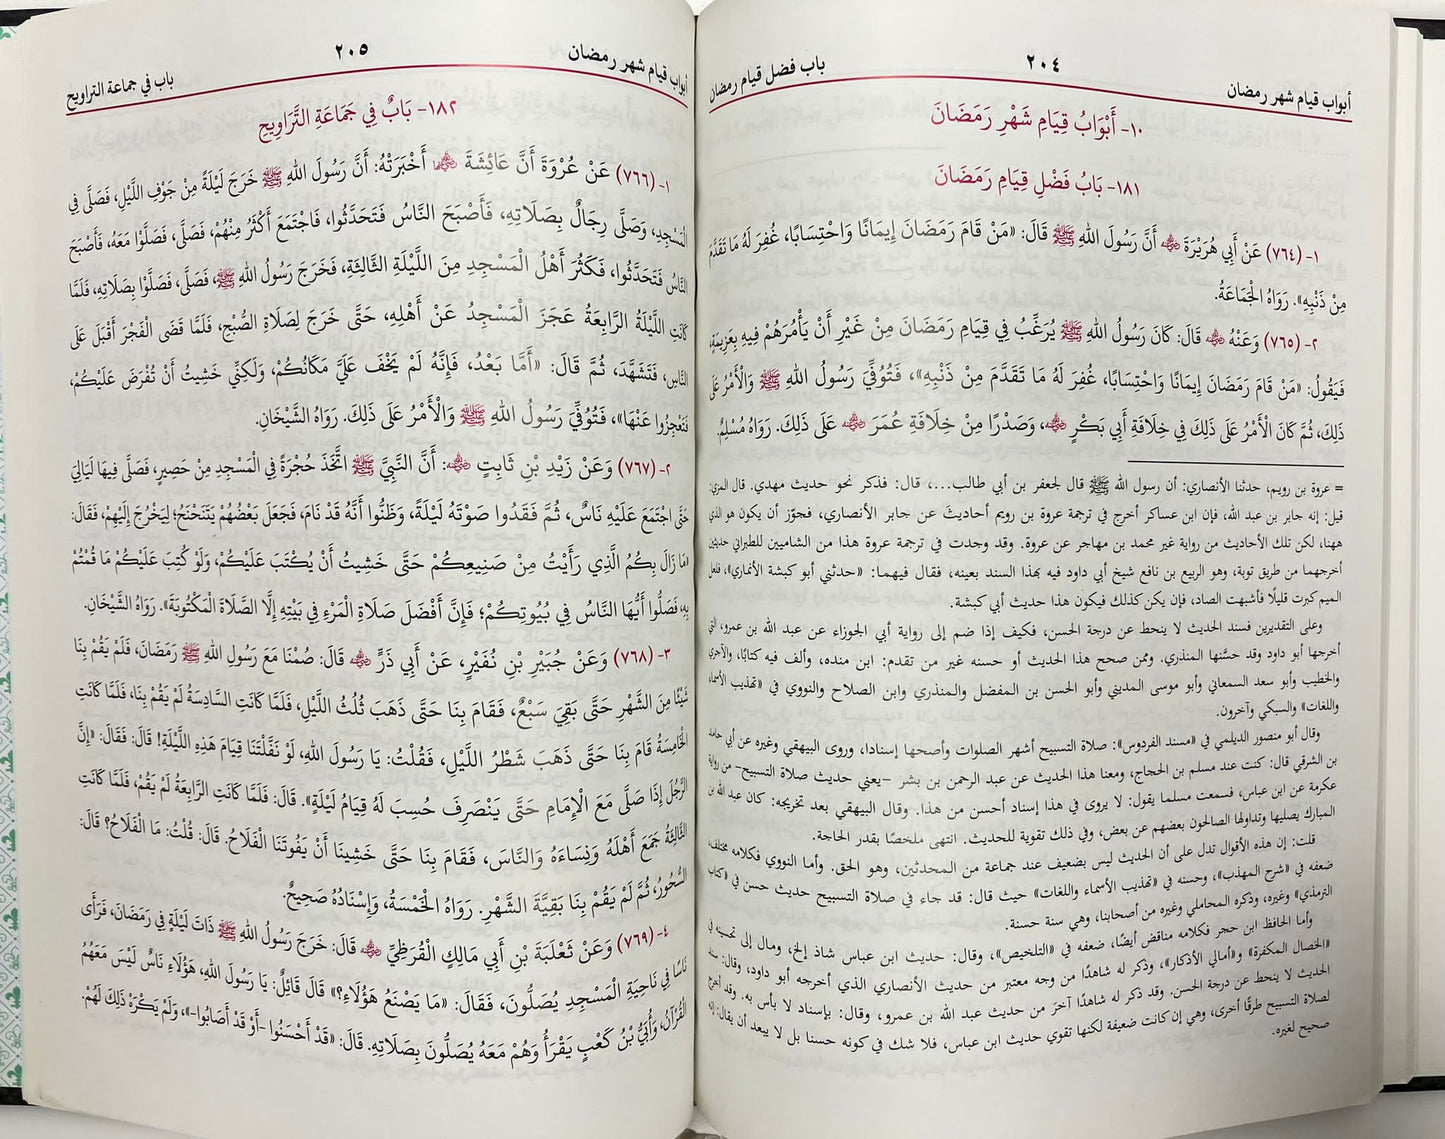 أبواب قيام شهر رمضان
٢٠٤
باب فضل قيام رمضان
١٠- أَبْوَابُ قِيَامِ شَهْرِ رَمَضَانَ
١٨١- بَابُ فَضْلِ قِيَامِ رَمَضَانَ
١- (٧٦٤) عَنْ أَبِي هُرَيْرَةَ ﵁ أَنَّ رَسُولَ اللهِ ﷺ قَالَ: «مَنْ قَامَ رَمَضَانَ إِيمَانًا وَاحْتِسَابًا، غُفِرَ لَهُ مَا تَقَدَّمَ
مِنْ ذَنْبِهِ». رَوَاهُ الْجَمَاعَةُ.
٢- (٧٦٥) وَعَنْهُ ﵁ قَالَ: كَانَ رَسُولُ اللهِ ﷺ يُرَغِّبُ فِي قِيَامِ رَمَضَانَ مِنْ غَيْرِ أَنْ يَأْمُرَهُمْ فِيهِ بِعَزِيمَةٍ،
فَيَقُولُ: «مَنْ قَامَ رَمَضَانَ إِيمَانًا وَاحْتِسَابًا، غُفِرَ لَهُ مَا تَقَدَّمَ مِنْ ذَنْبِهِ»، فَتُوُفِّيَ رَسُولُ اللهِ ﷺ وَالْأَمْرُ عَلَى
ذَلِكَ، ثُمَّ كَانَ الْأَمْرُ عَلَى ذَلِكَ فِي خِلَافَةِ أَبِي بَكْرٍ ﵁، وَصَدْرًا مِنْ خِلَافَةِ عُمَرَ ﵁ عَلَى ذَلِكَ. رَوَاهُ مُسْلِمٌ.
= عروة بن رويم، حدثنا الأنصاري: أن رسول الله ﷺ قال لجعفر بن أبي طالب...، قال: فذكر نحو حديث مهدي. قال المزي:
قيل: إنه جابر بن عبد الله، فإن ابن عساكر أخرج في ترجمة عروة بن رويم أحاديثَ عن جابر الأنصاري، فجوّز أن يكون هو الذي
ههنا، لكن تلك الأحاديث من رواية غير محمد بن مهاجر عن عروة. وقد وجدت في ترجمة عروة هذا من الشاميين للطبراني حديثين
أخرجهما من طريق توبة، وهو الربيع بن نافع شيخ أبي داود فيه بهذا السند بعينه، فقال فيهما: «حدثني أبو كبشة الأنماري»، فلعل
الميم كبرت قليلًا فأشبهت الصاد، فإن يكن كذلك فيكون هذا حديث أبي كبشة.
وعلى التقديرين فسند الحديث لا ينحط عن درجة الحسن، فكيف إذا ضم إلى رواية أبي الجوزاء عن عبد الله بن عمرو، التي
أخرجها أبو داود وقد حسَّنها المنذري. وممن صحح هذا الحديث أو حسنه غير من تقدم: ابن منده، وألف فيه كتابًا، والآجري
والخطيب وأبو سعد السمعاني وأبو موسى المديني وأبو الحسن بن المفضل والمنذري وابن الصلاح والنووي في «تهذيب الأسماء
واللغات» والسبكي وآخرون.
وقال أبو منصور الديلمي في «مسند الفردوس»: صلاة التسبيح أشهر الصلوات وأصحها إسنادا، وروى البيهقي وغيره عن أبي حامد
بن الشرقي قال: كنت عند مسلم بن الحجاج، ومعنا هذا الحديث عن عبد الرحمن بن بشر -يعني حديث صلاة التسبيح- من رواية
عكرمة عن ابن عباس، فسمعت مسلما يقول: لا يروى في هذا إسناد أحسن من هذا. وقال البيهقي بعد تخريجه: كان عبد الله بن
المبارك يصليها وتداولها الصالحون بعضهم عن بعض، وفي ذلك تقوية للحديث. انتهى ملخصًا بقدر الحاجة.
قلت: إن هذه الأقوال تدل على أن الحديث ليس بضعيف عند جماعة من المحدثين، وهو الحق. وأما النووي فكلامه مختلف،
ضعفه في «شرح المهذب»، وحسنه في «تهذيب الأسماء واللغات» حيث قال: قد جاء في صلاة التسبيح حديث حسن في «كتاب
الترمذي» وغيره، وذكره المحاملي وغيره من أصحابنا، وهي سنة حسنة.
وأما الحافظ ابن حجر فكلامه مناقض أيضًا، ضعفه في «التلخيص»، وقال: حديث ابن عباس شاذ إلخ، ومال إلى تحسينه في
«الخصال المكفرة» و«أمالي الأذكار»، وذكر له شاهدًا من وجه معتبر من حديث الأنصاري الذي أخرجه أبو داود، وقال: سند
الحديث لا ينحط عن درجة الحسن. وقد ذكر له شاهدًا آخرَ من حديث عبد الله بن عمرو، وقال: بإسناد لا بأس به. وقد أخرج
لصلاة التسبيح طرقًا أخرى، وهي إن كانت ضعيفة لكنها تقوي حديث ابن عباس، فلا شك في كونه حسنا بل لا يبعد أن يقال: إنه
صحيح لغيره.
أبواب قيام شهر رمضان
٢٠٥
باب في جماعة التراويح
١٨٢- بَابٌ فِي جَمَاعَةِ التَّرَاوِيحِ
١- (٧٦٦) عَنْ عُرْوَةَ أَنَّ عَائِشَةَ ﵂ أَخْبَرَتْهُ: أَنَّ رَسُولَ اللهِ ﷺ خَرَجَ لَيْلَةً مِنْ جَوْفِ اللَّيْلِ، فَصَلَّى فِي
الْمَسْجِدِ، وَصَلَّى رِجَالٌ بِصَلَاتِهِ، فَأَصْبَحَ النَّاسُ فَتَحَدَّثُوا، فَاجْتَمَعَ أَكْثَرُ مِنْهُمْ، فَصَلَّى، فَصَلَّوْا مَعَهُ، فَأَصْبَحَ
النَّاسُ فَتَحَدَّثُوا، فَكَثُرَ أَهْلُ الْمَسْجِدِ مِنَ اللَّيْلَةِ الثَّالِثَةِ، فَخَرَجَ رَسُولُ اللهِ ﷺ، فَصَلَّى، فَصَلَّوْا بِصَلَاتِهِ، فَلَمَّا
كَانَتِ اللَّيْلَةُ الرَّابِعَةُ عَجَزَ الْمَسْجِدُ عَنْ أَهْلِهِ، حَتَّى خَرَجَ لِصَلَاةِ الصُّبْحِ، فَلَمَّا قَضَى الْفَجْرَ أَقْبَلَ عَلَى
النَّاسِ، فَتَشَهَّدَ، ثُمَّ قَالَ: «أَمَّا بَعْدُ، فَإِنَّهُ لَمْ يَخْفَ عَلَيَّ مَكَانُكُمْ، وَلَكِنِّي خَشِيتُ أَنْ تُفْرَضَ عَلَيْكُمْ،
فَتَعْجِزُوا عَنْهَا»، فَتُوُفِّيَ رَسُولُ اللهِ ﷺ وَالْأَمْرُ عَلَى ذَلِكَ. رَوَاهُ الشَّيْخَانِ.
٢- (٧٦٧) وَعَنْ زَيْدِ بْنِ ثَابِتٍ ﵁: أَنَّ النَّبِيَّ ﷺ اتَّخَذَ حُجْرَةً فِي الْمَسْجِدِ مِنْ حَصِيرٍ، فَصَلَّى فِيهَا لَيَالِيَ
حَتَّى اجْتَمَعَ عَلَيْهِ نَاسٌ، ثُمَّ فَقَدُوا صَوْتَهُ لَيْلَةً، وَظَنُّوا أَنَّهُ قَدْ نَامَ، فَجَعَلَ بَعْضُهُمْ يَتَنَحْنَحُ؛ لِيَخْرُجَ إِلَيْهِمْ، فَقَالَ:
«مَا زَالَ بِكُمُ الَّذِي رَأَيْتُ مِنْ صَنِيعِكُمْ حَتَّى خَشِيتُ أَنْ يُكْتَبَ عَلَيْكُمْ، وَلَوْ كُتِبَ عَلَيْكُمْ مَا قُمْتُمْ
بِهِ، فَصَلُّوا أَيُّهَا النَّاسُ فِي بُيُوتِكُمْ؛ فَإِنَّ أَفْضَلَ صَلَاةِ الْمَرْءِ فِي بَيْتِهِ إِلَّا الصَّلَاةَ الْمَكْتُوبَةَ». رَوَاهُ الشَّيْخَانِ.
٣- (٧٦٨) وَعَنْ جُبَيْرِ بْنِ نُفَيْرٍ، عَنْ أَبِي ذَرٍّ ﵁ قَالَ: صُمْنَا مَعَ رَسُولِ اللهِ ﷺ رَمَضَانَ، فَلَمْ يَقُمْ بِنَا
شَيْئًا مِنَ الشَّهْرِ حَتَّى بَقِيَ سَبْعٌ، فَقَامَ بِنَا حَتَّى ذَهَبَ ثُلُثُ اللَّيْلِ، فَلَمَّا كَانَتِ السَّادِسَةُ لَمْ يَقُمْ بِنَا، فَلَمَّا كَانَتِ
الْخَامِسَةُ قَامَ بِنَا حَتَّى ذَهَبَ شَطْرُ اللَّيْلِ، فَقُلْتُ: يَا رَسُولَ اللهِ، لَوْ نَفَّلْتَنَا قِيَامَ هَذِهِ اللَّيْلَةِ! قَالَ: فَقَالَ: «إِنَّ
الرَّجُلَ إِذَا صَلَّى مَعَ الْإِمَامِ حَتَّى يَنْصَرِفَ حُسِبَ لَهُ قِيَامُ لَيْلَةٍ». قَالَ: فَلَمَّا كَانَتِ الرَّابِعَةُ لَمْ يَقُمْ، فَلَمَّا كَانَتِ
الثَّالِثَةُ جَمَعَ أَهْلَهُ وَنِسَاءَهُ وَالنَّاسَ، فَقَامَ بِنَا حَتَّى خَشِينَا أَنْ يَفُوتَنَا الْفَلَاحُ. قَالَ: قُلْتُ: مَا الْفَلَاحُ؟ قَالَ:
السُّحُورُ، ثُمَّ لَمْ يَقُمْ بِنَا بَقِيَّةَ الشَّهْرِ. رَوَاهُ الْخَمْسَةُ، وَإِسْنَادُهُ صَحِيحٌ.
٤- (٧٦٩) وَعَنْ ثَعْلَبَةَ بْنِ أَبِي مَالِكٍ الْقُرَظِيِّ ﵁ قَالَ: خَرَجَ رَسُولُ اللهِ ﷺ ذَاتَ لَيْلَةٍ فِي رَمَضَانَ، فَرَأَى
نَاسًا فِي نَاحِيَةِ الْمَسْجِدِ يُصَلُّونَ، فَقَالَ: «مَا يَصْنَعُ هَؤُلَاءِ؟» قَالَ قَائِلٌ: يَا رَسُولَ اللهِ، هَؤُلَاءِ نَاسٌ لَيْسَ مَعَهُمُ
الْقُرْآنُ، وَأُبَيُّ بْنُ كَعْبٍ يَقْرَأُ وَهُمْ مَعَهُ يُصَلُّونَ بِصَلَاتِهِ. قَالَ: «قَدْ أَحْسَنُوا -أَوْ قَدْ أَصَابُوا-»، وَلَمْ يَكْرَهْ ذَلِكَ لَهُمْ.